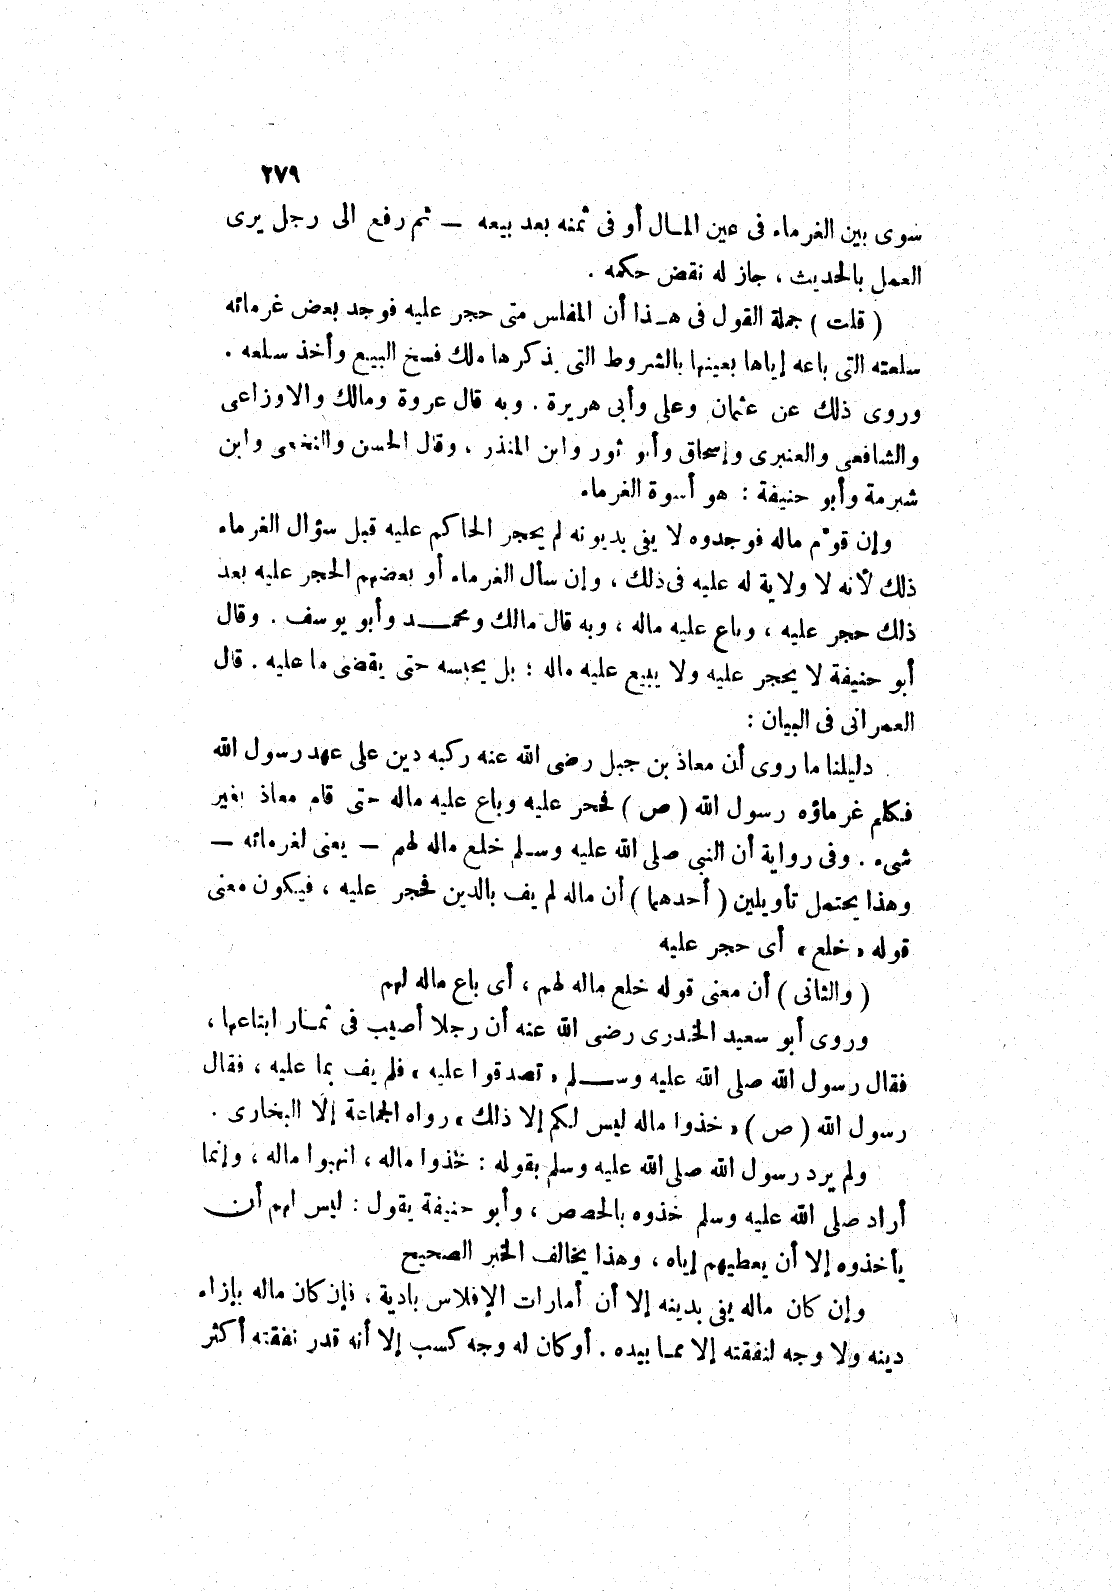 ٢٧٩
سوى بين الغرماء فى عين المال أو فى ثمنه بعد بيعه – ثم رفع الى رجل يرى
العمل بالحديث ، جاز له نقض حكمه .
( قلت ) جملة القول فى هذا أن المفلس متى حجر عليه فوجد بعض غرمائه
سلعته التى باعه إياها بعينها بالشروط التى يذكرها ملك فسخ البيع وأخذ سلعه .
وروى ذلك عن عثمان وعلى وأبى هريرة . وبه قال عروة ومالك والاوزاعى
والشافعى والعنبرى وإسحاق وأبو ثور وابن المنذر ، وقال الحسن والنخعى وابن
شبرمة وأبو حنيفة : هو أسوة الغرماء
وإن قوّم ماله فوجدوه لا يفى بديونه لم يحجر الحاكم عليه قبل سؤال الغرماء
ذلك لأنه لا ولاية له عليه فى ذلك ، وإن سأل الغرماء أو بعضهم الحجر عليه بعد
ذلك حجر عليه ، وباع عليه ماله ، وبه قال مالك ومحمد وأبو يوسف . وقال
أبو حنيفة لا يحجر عليه ولا يبيع عليه ماله ؛ بل يحبسه حتى يقضى ما عليه . قال
العمرانى فى البيان :
دليلنا ما روى أن معاذ بن جبل رضى الله عنه ركبه دين على عهد رسول الله
فكلم غرماؤه رسول الله ( ص ) فحجر عليه وباع عليه ماله حتى قام معاذ بغير
شىء . وفى رواية أن النبى صلى الله عليه وسلم خلع ماله لهم – يعنى لغرمائه –
وهذا يحتمل تأويلين ( أحدهما ) أن ماله لم يف بالدين فحجر عليه ، فيكون معنى
قوله « خلع » أى حجر عليه
( والثانى ) أن معنى قوله خلع ماله لهم ، أى باع ماله لهم
وروى أبو سعيد الخدرى رضى الله عنه أن رجلا أصيب فى ثمار ابتاعها ،
فقال رسول الله صلى الله عليه وسلم « تصدقوا عليه » فلم يف بما عليه ، فقال
رسول الله ( ص ) « خذوا ماله ليس لكم إلا ذلك » رواه الجماعة إلا البخارى .
ولم يرد رسول الله صلى الله عليه وسلم بقوله : خذوا ماله ، انهبوا ماله ، وإنما
أراد صلى الله عليه وسلم خذوه بالحصص ، وأبو حنيفة يقول : ليس لهم أن
يأخذوه إلا أن يعطيهم إياه ، وهذا يخالف الخبر الصحيح
وإن كان ماله يفى بدينه إلا أن أمارات الإفلاس بادية ، فإن كان ماله بإزاء
دينه ولا وجه لنفقته إلا مما بيده . أو كان له وجه كسب إلا أنه قدر نفقته أكثر